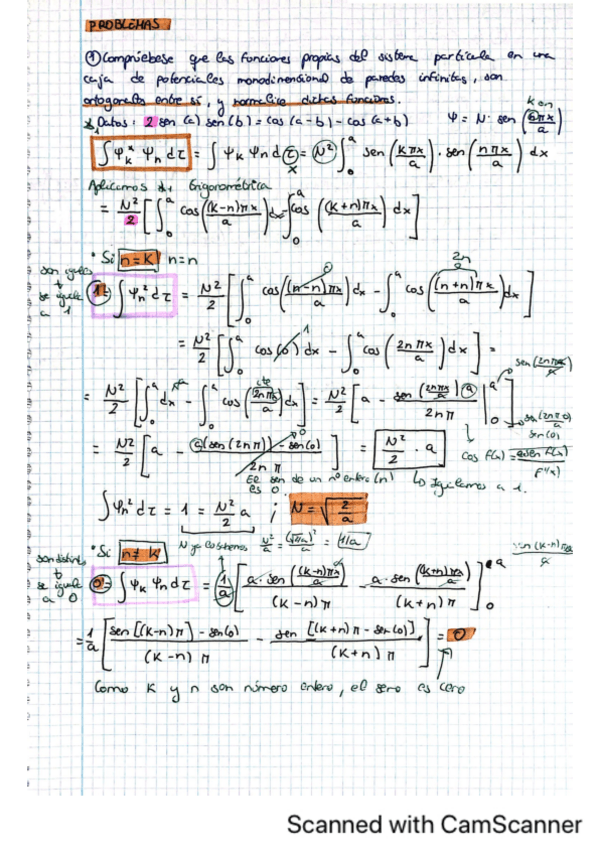 PROBLEMAS
① Compruébese que las funciones propias del sistema partícula en una
caja de potenciales monodimensional de paredes infinitas, son
ortogonales entre sí, y normalice dichas funciones.
* Datos: 2 sen (a) sen (b) = cos (a-b) - cos (a+b)
k o n
Ψ = N· sen (nπx/a)
∫ Ψk* Ψn dτ = ∫ Ψk Ψn dτ = N² ∫₀ᵃ sen (kπx/a) · sen (nπx/a) dx
x
Aplicamos trigonométrica
= N²/2 [∫₀ᵃ cos((k-n)πx/a) dx - ∫₀ᵃ cos((k+n)πx/a) dx]
* Si n=k n=n
son iguales
se iguala
a 1
1 = ∫ Ψn² dτ = N²/2 [∫₀ᵃ cos((n-n)πx/a) dx - ∫₀ᵃ cos((n+n)πx/a) dx]
0
2n
= N²/2 [∫₀ᵃ cos(0) dx - ∫₀ᵃ cos(2nπx/a) dx] =
1
= N²/2 [∫₀ᵃ dx - ∫₀ᵃ cos(2nπx/a) dx] = N²/2 [a - sen(2nπx/a) a / 2nπ |₀ᵃ]
cte
sen(0)
= N²/2 [a - a(sen(2nπ)) - sen(0) / 2nπ] = N²/2 · a
0
El sen de un nº entero (n)
es 0
Lo igualamos a 1.
∫Ψn² dτ = 1 = N²/2 a ; N = √(2/a)
* Si n≠k
N ya lo tenemos
son distintos
se iguala
a 0
0 = ∫ Ψk Ψn dτ = 1/a [a· sen((k-n)πx/a) / (k-n)π - a· sen((k+n)πx/a) / (k+n)π]₀ᵃ
= 1/a [sen[(k-n)π] - sen(0) / (k-n)π - sen[(k+n)π - sen(0)] / (k+n)π] = 0
Como k y n son número entero, el seno es cero
Scanned with CamScanner